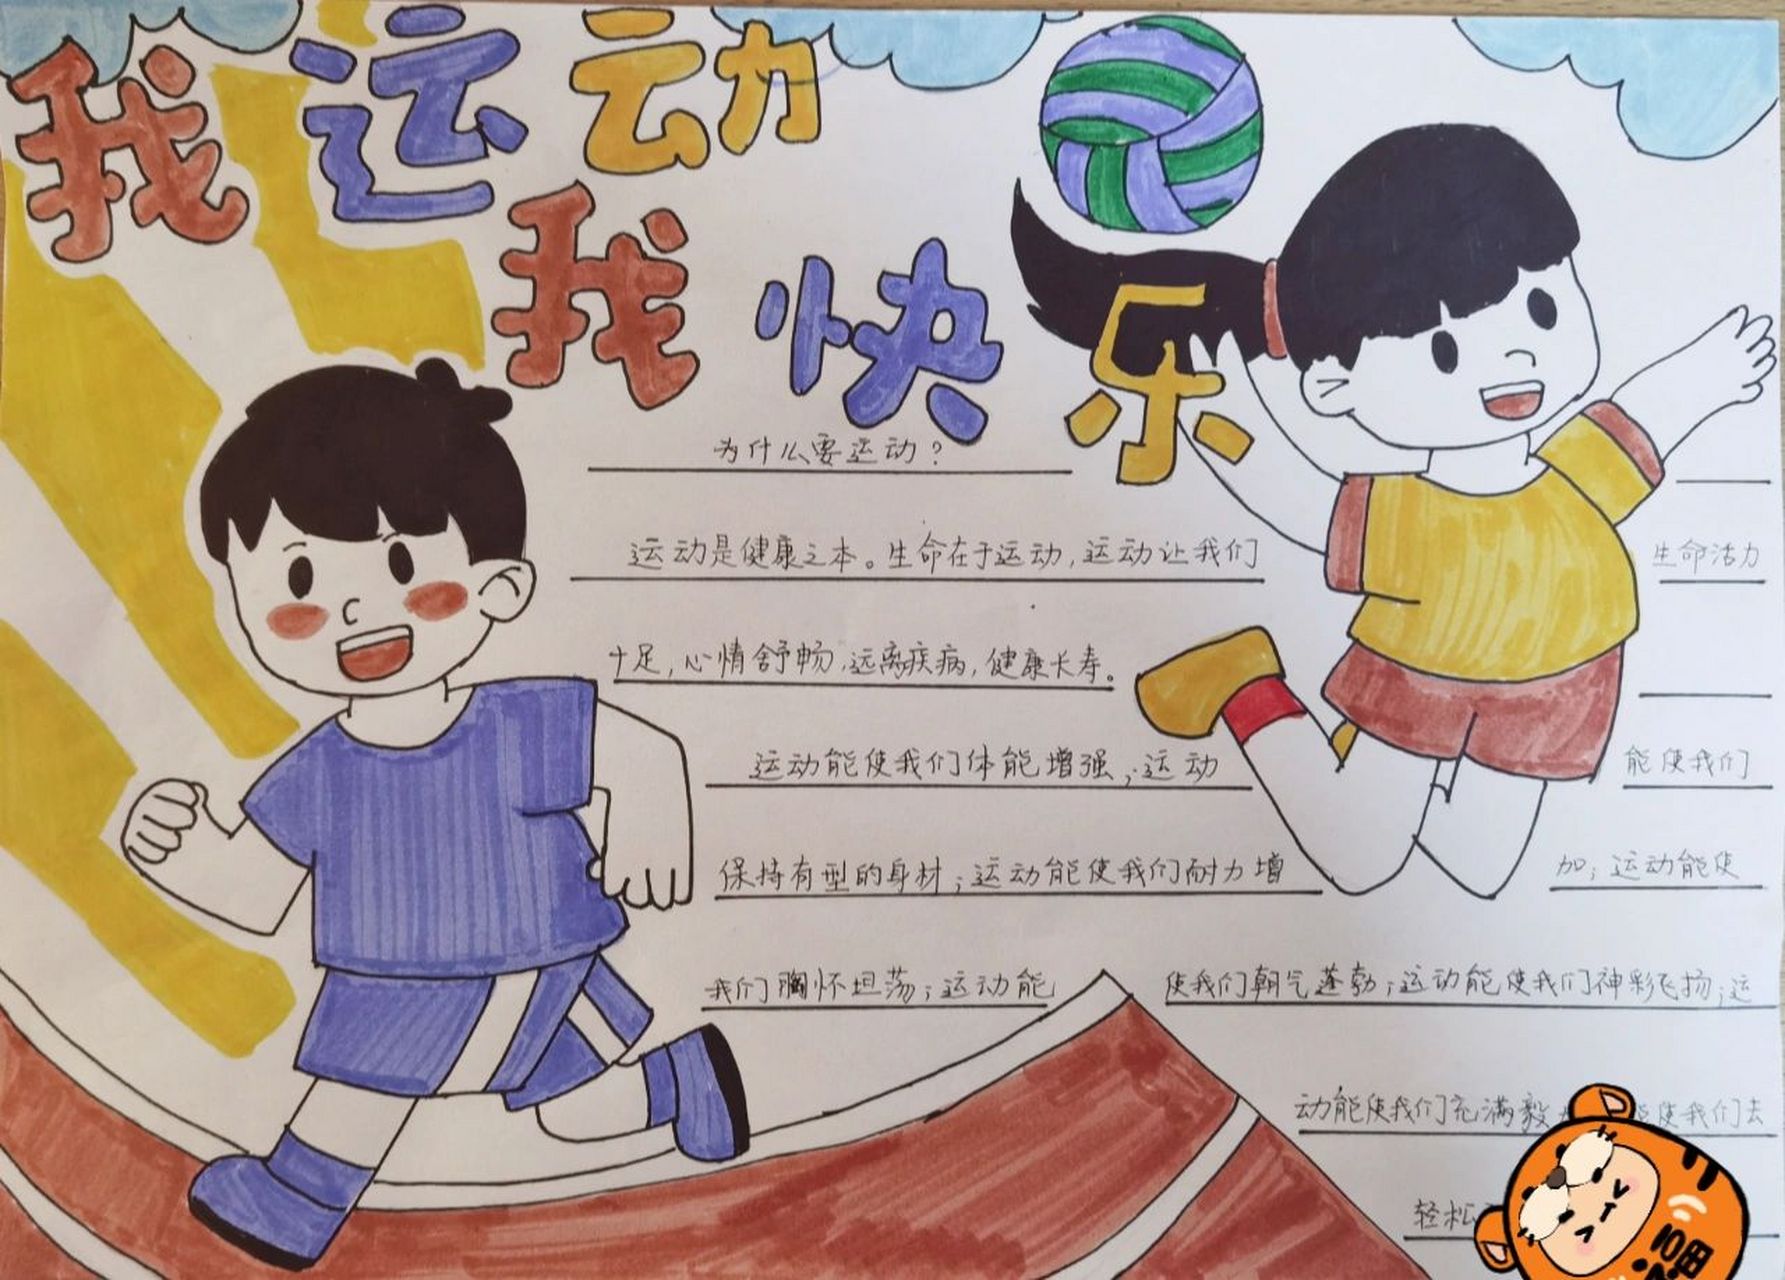 我运动
我快乐
为什么要运动？
运动是健康之本。生命在于运动，运动让我们 生命活力
十足，心情舒畅，远离疾病，健康长寿。
运动能使我们体能增强；运动 能使我们
保持有型的身材；运动能使我们耐力增 加；运动能使
我们胸怀坦荡；运动能 使我们朝气蓬勃；运动能使我们神彩飞扬；运
动能使我们充满毅 使我们去
轻松